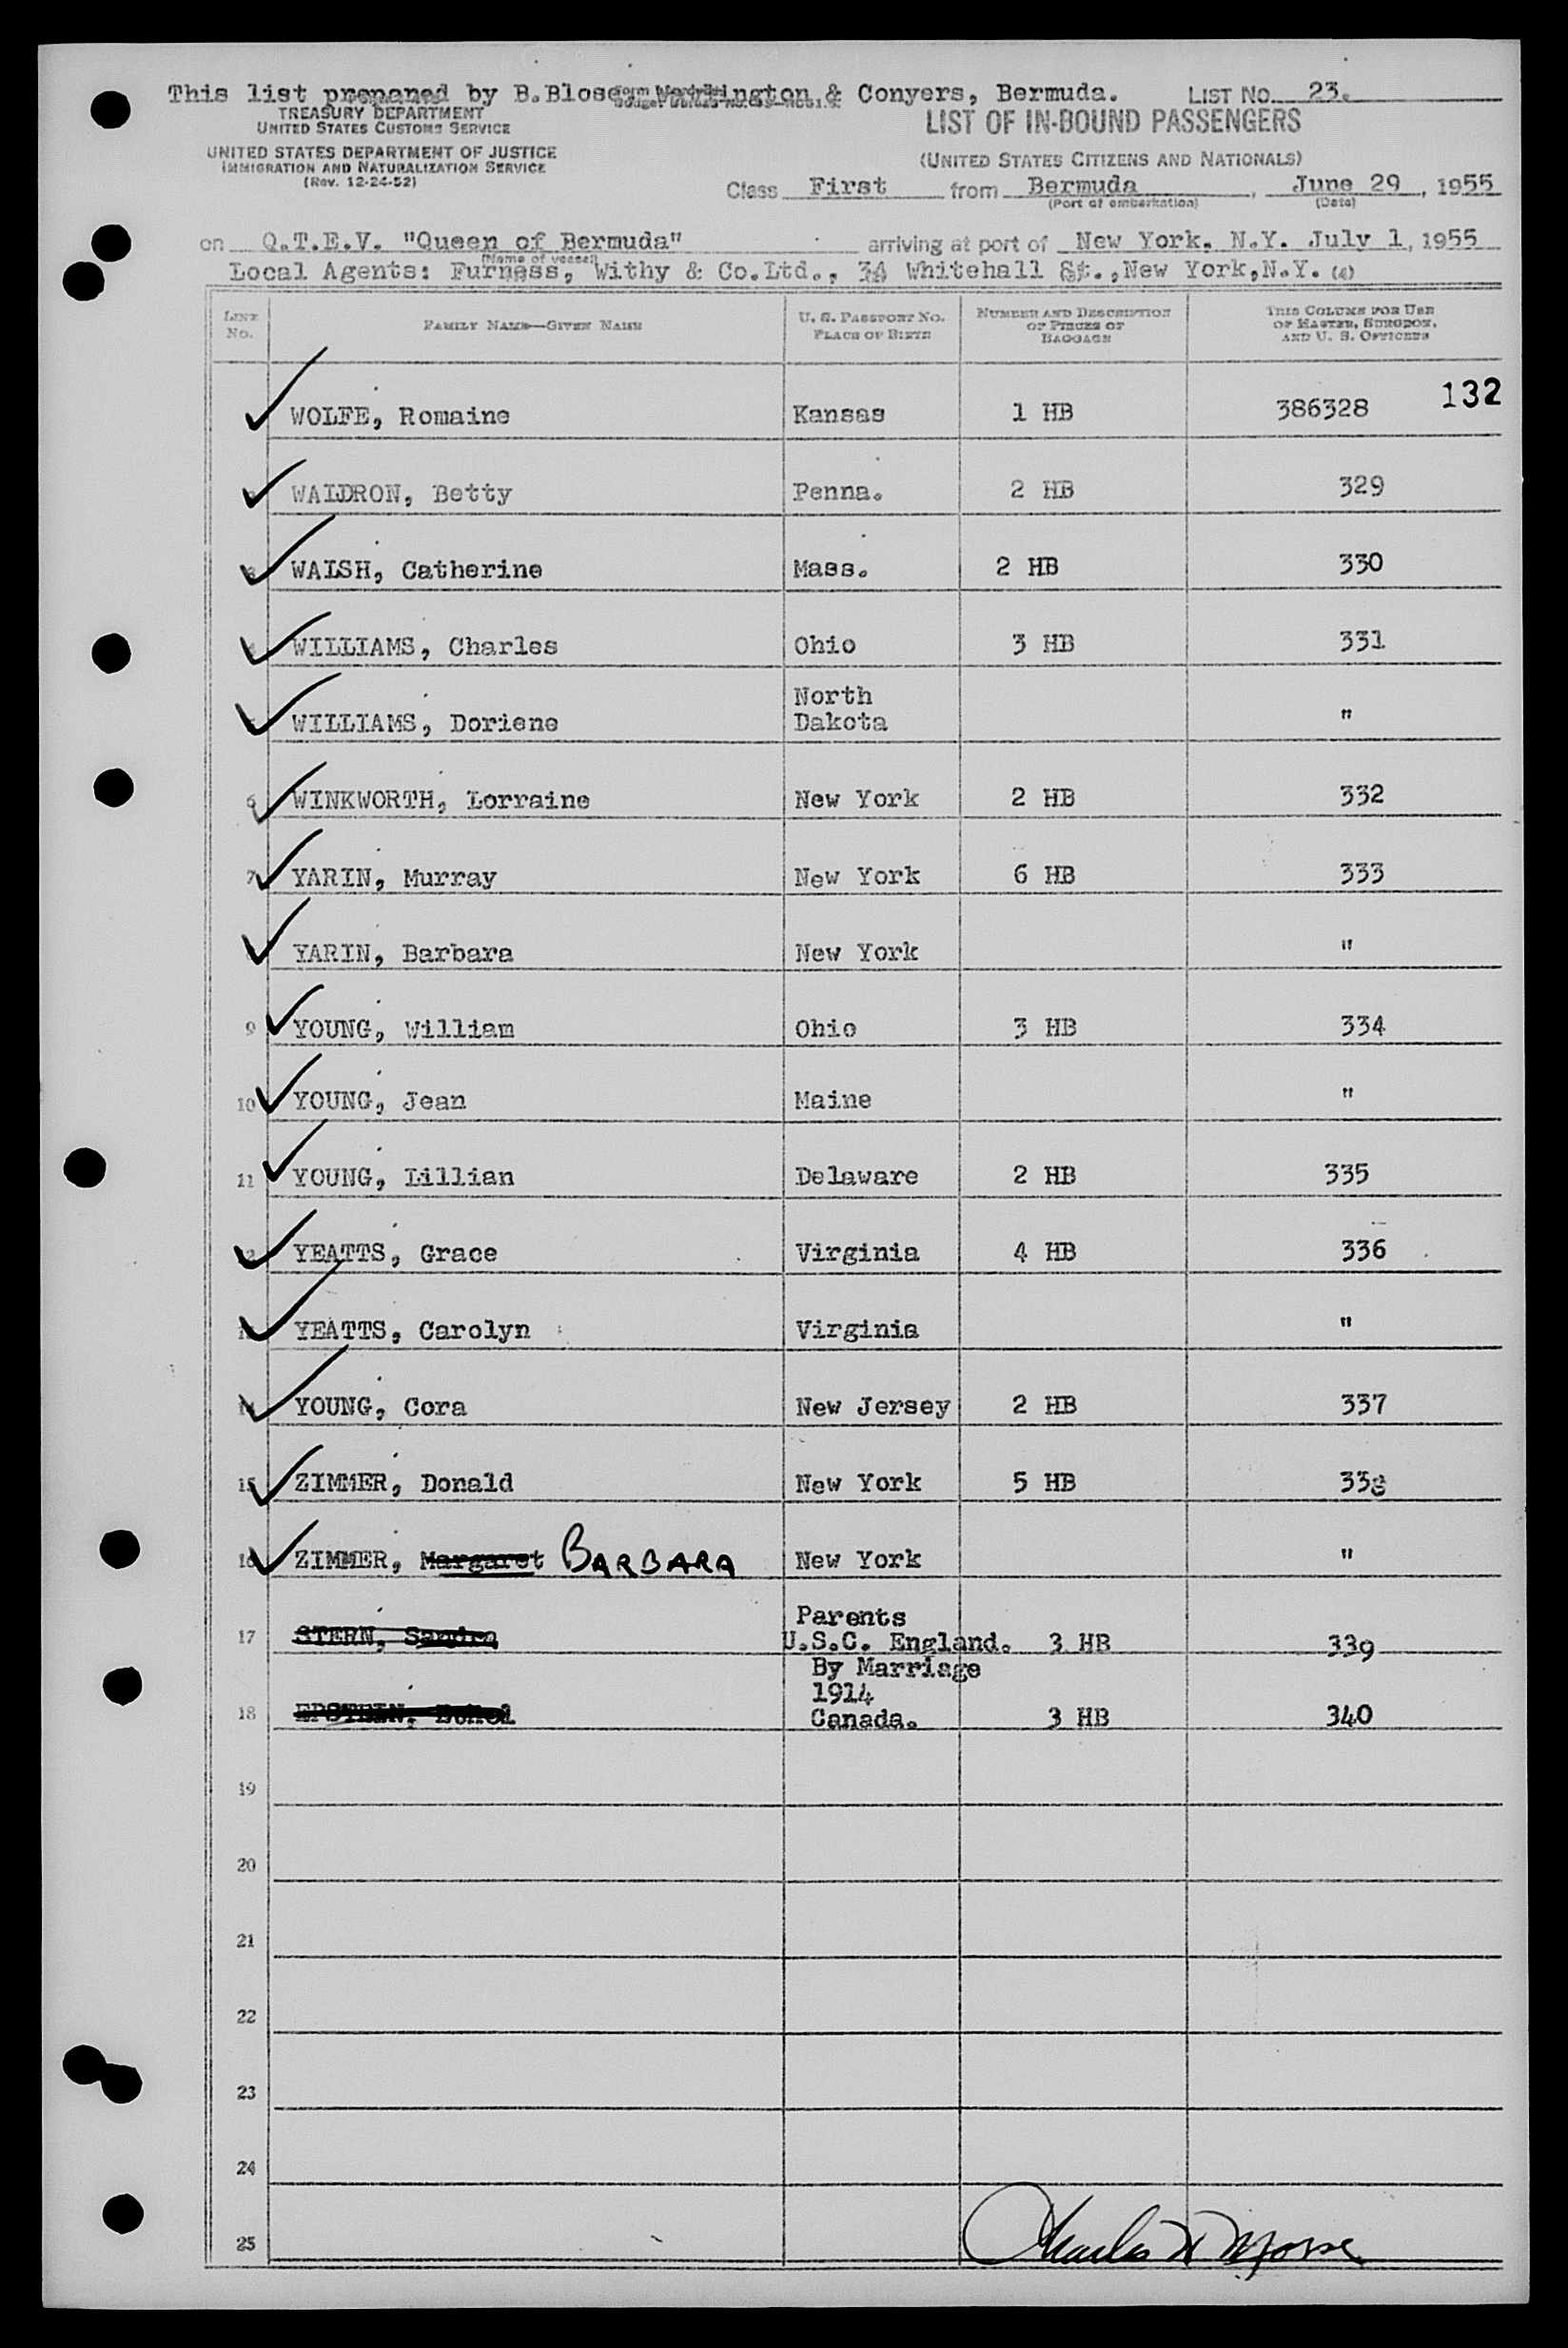 This list prepared by B.Blose Wadkington & Conyers, Bermuda. LIST NO. 23.
TREASURY DEPARTMENT
UNITED STATES CUSTOMS SERVICE
UNITED STATES DEPARTMENT OF JUSTICE
IMMIGRATION AND NATURALIZATION SERVICE
(Rev. 12-24-52)
LIST OF IN-BOUND PASSENGERS
(UNITED STATES CITIZENS AND NATIONALS)
Class First from Bermuda, June 29, 1955
(Port of embarkation) (Date)
on Q.T.E.V. "Queen of Bermuda" arriving at port of New York, N.Y. July 1, 1955
(Name of vessel)
Local Agents: Furness, Withy & Co.Ltd., 34 Whitehall St.,New York,N.Y. (4)
LINE No. FAMILY NAME—GIVEN NAME U. S. PASSPORT NO. PLACE OF BIRTH NUMBER AND DESCRIPTION OF PIECES OF BAGGAGE THIS COLUMN FOR USE OF MASTER, SURGEON, AND U. S. OFFICERS
132
WOLFE, Romaine Kansas 1 HB 386328
WALDRON, Betty Penna. 2 HB 329
3 WALSH, Catherine Mass. 2 HB 330
4 WILLIAMS, Charles Ohio 3 HB 331
WILLIAMS, Doriene North Dakota "
6 WINKWORTH, Lorraine New York 2 HB 332
7 YARIN, Murray New York 6 HB 333
YARIN, Barbara New York "
9 YOUNG, William Ohio 3 HB 334
10 YOUNG, Jean Maine "
11 YOUNG, Lillian Delaware 2 HB 335
12 YEATTS, Grace Virginia 4 HB 336
13 YEATTS, Carolyn Virginia "
14 YOUNG, Cora New Jersey 2 HB 337
15 ZIMMER, Donald New York 5 HB 338
16 ZIMMER, Margaret BARBARA New York "
Parents
17 STERN, Sandra U.S.C. England. 3 HB 339
By Marriage
1914
18 EPSTEIN, Canada. 3 HB 340
19
20
21
22
23
24
25 Charles H Morse